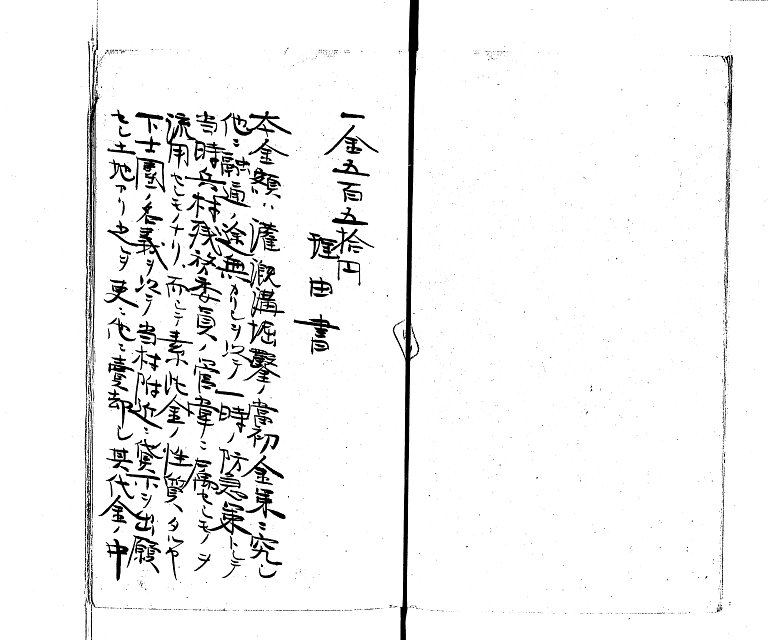 一金五百五拾円
理由書
本金額ハ灌漑溝堀鑿ノ當初金策ニ究シ
他ニ融通ノ途無カリシヲ以テ一時ノ防急策トシテ
当時兵村残務委員ノ管理ニ属セシモノヲ
流用セシモノナリ而シテ素此金ノ性質タルヤ
下士團ノ名義ヲ以テ当村附近ニ貸下ヲ出願
セシ土地アリ之レヲ更ニ他ニ賣却シ其代金ノ中